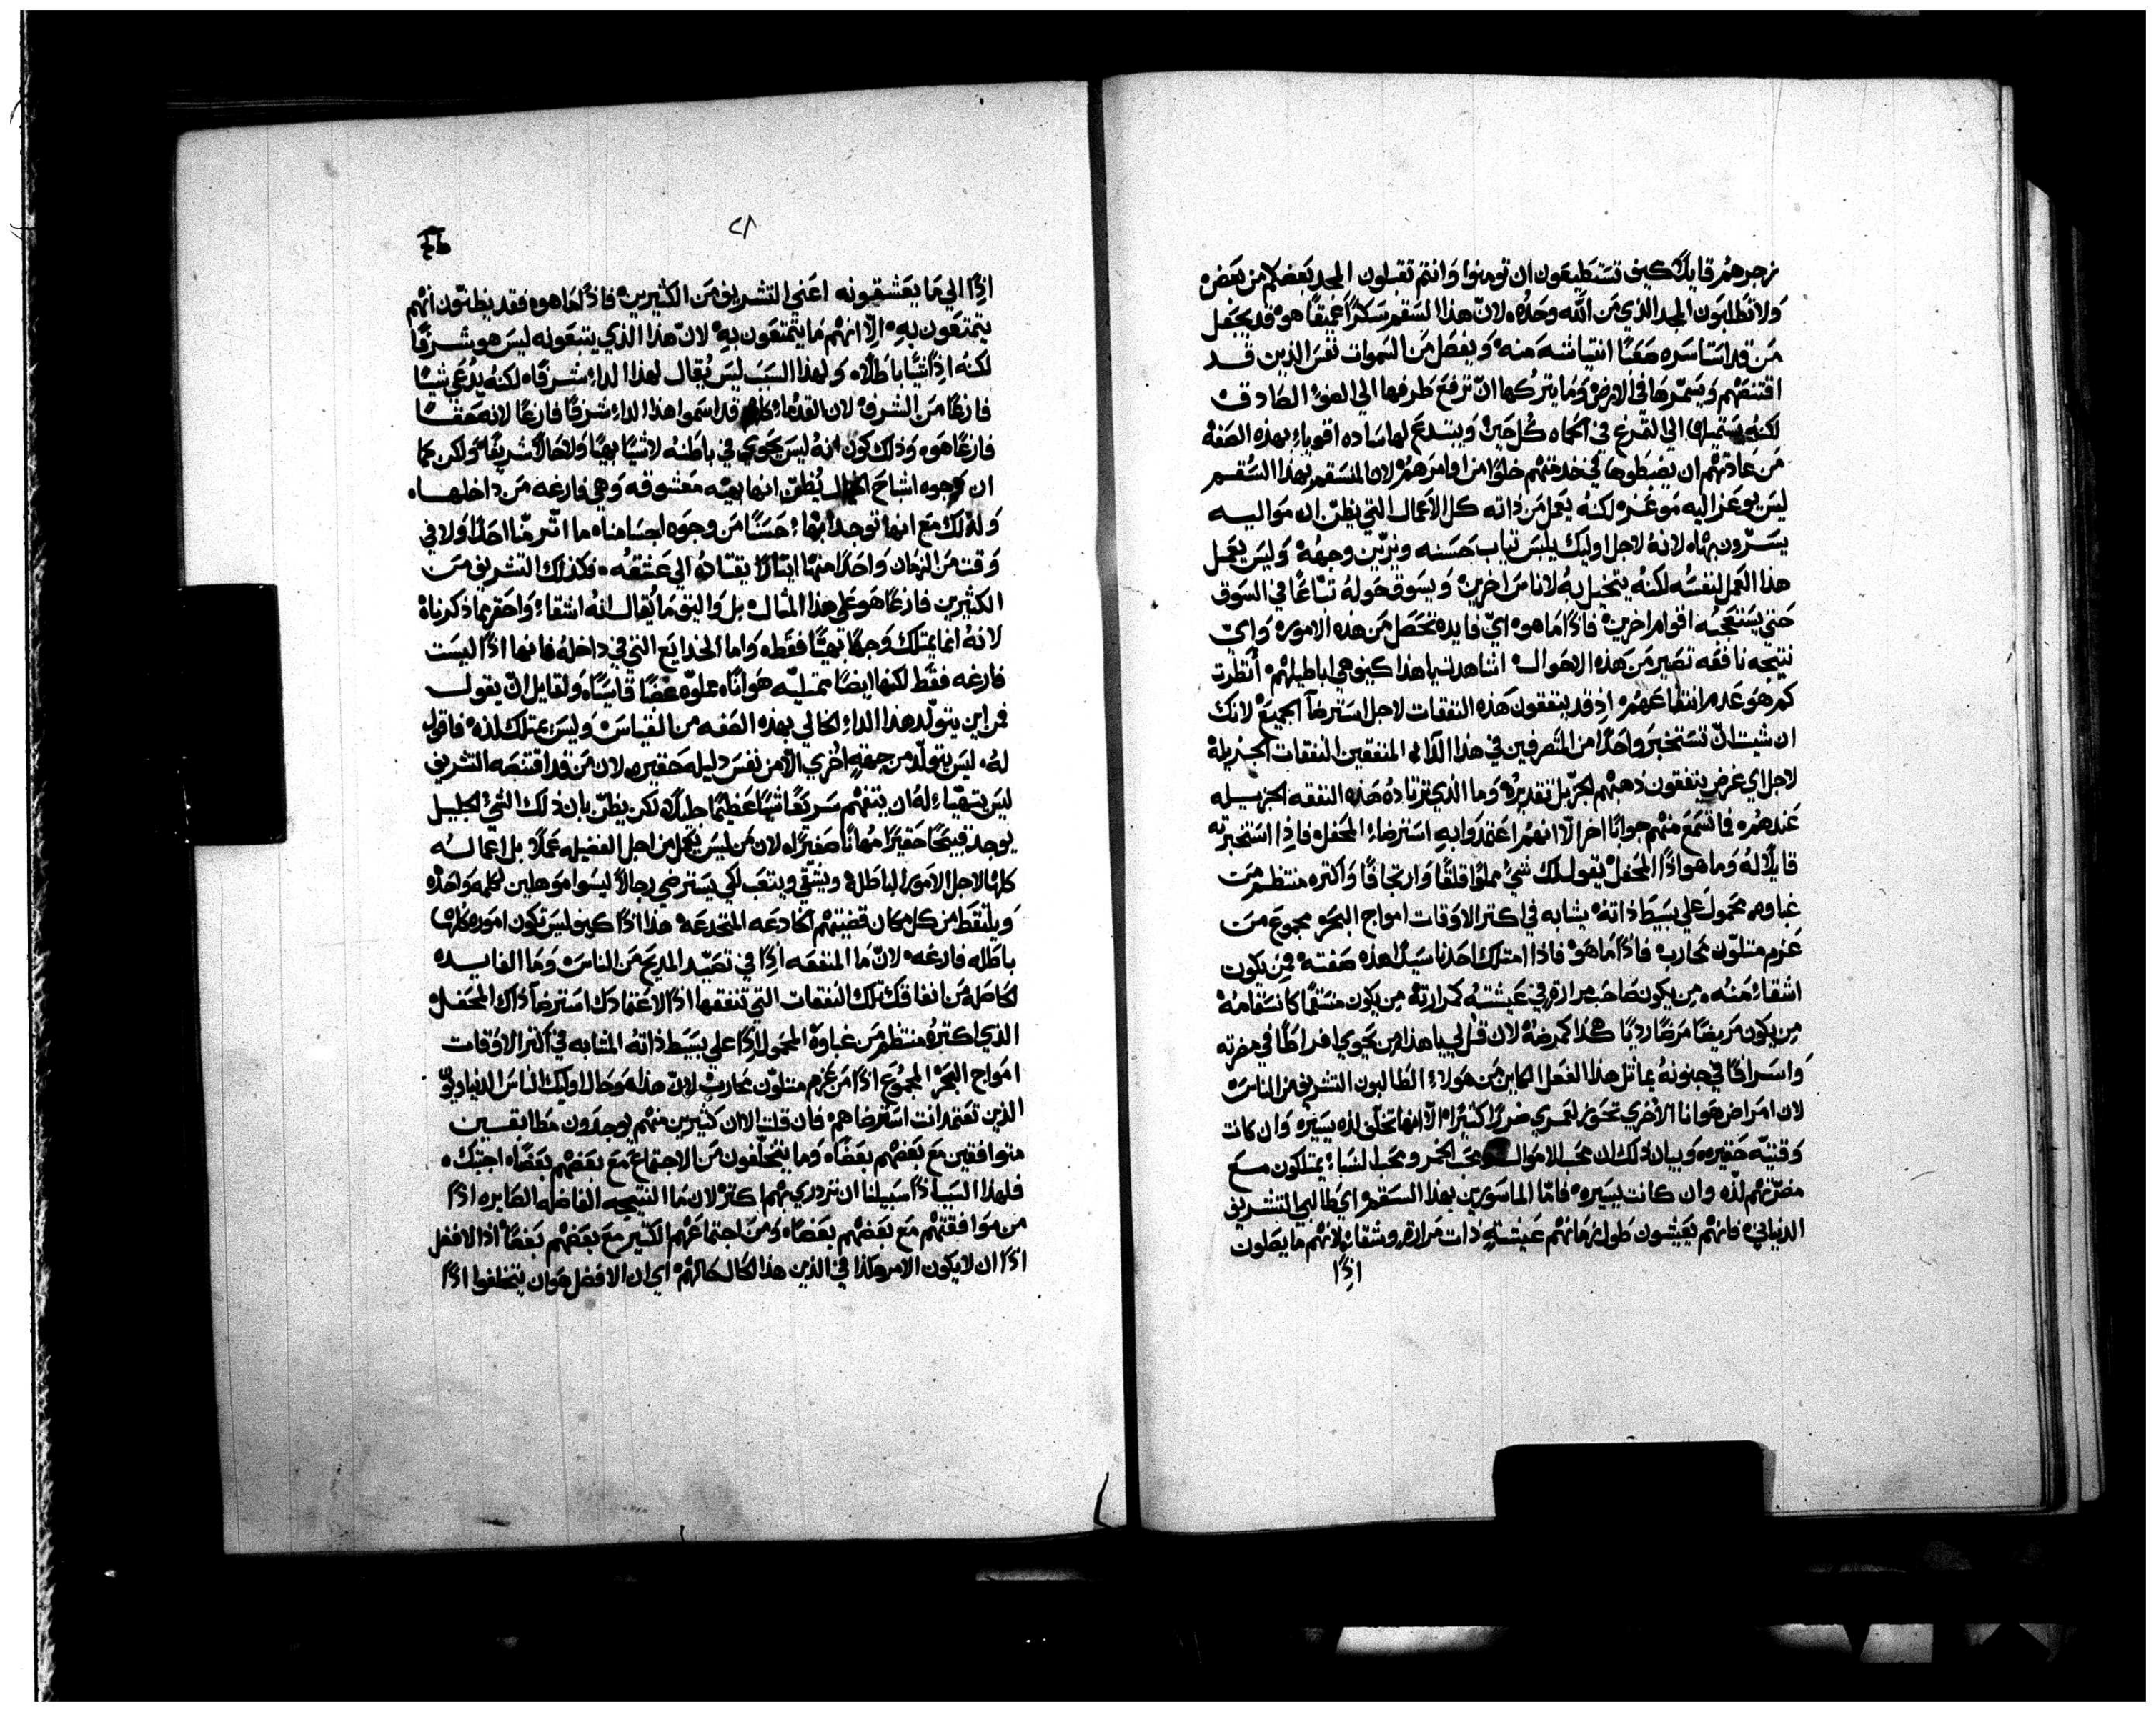 زجرهم قايلاً كيف تستطيعون ان تومنوا وانتم تقبلون المجد بعضكم من بعض
ولا تطلبون المجد الذي من الله وحده، لان هذا السقم سكراً عميقاً هو قد يجعل
من قد استاسره صعباً انتياشه منه ويفصل من السموات نفس الذين قد
اقتنصهم ويسمرها في الارض وما يتركها ان ترفع طرفها الي الضوء الصادق
لكنه الي التمرغ في الحماه كل حين ويبتدع لها ساده اقوياء بهذه الصفه
من عادتهم ان يضبطوها في خدمتهم خلواً من اوامرهم لان المنسقم بهذا السقم
ليس يوعز اليه موعز لكنه يعمل من ذاته كل الاعمال التي يظن ان مواليه
يسرون بها، لانه لاجل اوليك يلبس ثياب حسنه ويزين وجهه وليس يعمل
هذا العمل لنفسه لكنه يتحيل به لاناس اخرين ويسوق حوله تباعاً في السوق
حتي يستعجبه اقوام اخرين فاذاً ما هو اي فايده تحصل من هذه الامور واي
نتيجه نافعه تصير من هذه الاحوال اشاهدت يا هذا كيف هي اباطيلهم أنظرت
كم هو عدم انتفاعهم اذ قد ينفقون هذه النفقات لاجل استرضآ الجميع لانك
ان شيت ان تستخبر واحداً من المتصرفين في هذا الدآ المنفقين النفقات الجزيلة
لاجل اي غرض ينفقون ذهبهم الجزيل تقديره وما الذي تزتاده هذه النفقه الجزيله
عندهم فما تسمع منهم جواباً اخر الا انهم اعتمدوا به استرضاء المحفل فاذا استخبرته
قايلاً له وما هو اذاً المحفل يقول لك شيء مملواً قلقاً وارتجافاً واكتره منتظم من
غباوه محمول علي بسيط ذاته يشابه في اكتر الاوقات امواج البحر مجموع من
عزم متلون محارب فاذاً ما هو فاذا امتلك احدنا سيداً هذه صفته فمن يكون
اشقاء منه، من يكون صاحب مرارة في عيشته كمرارته من يكون منسقماً كانسقامه
من يكون مريضاً مرضاً رديًا هكذا كمرضه لان قل لي يا هذا من يحوي افراطاً في مضرته
واسرافاً في جنونه يماثل هذا الفعل الكاين من هولاء الطالبون التشريف من الناس
لان امراض هوانا الاخري تحوي لعمري ضرراً كثيراً، الا انها تحلي لذه يسيره وان كانت
وقتيه حقيره، وبيان ذلك ان محب الاموال ومحب الخمر ومحب النساء يمتلكون مع
مضرتهم لذه وان كانت يسيره، فاما الماسورين بهذا السقم اي طالبي التشريف
الدنياني، فانهم يعيشون طول زمانهم عيشتةٍ ذات مرارة وشقاء لانهم ما يصلون
اذاً
٢٨
اذاً الي ما يعشقونه اعني التشريف من الكثيرين فاذاً ما هو، فقد يظنون انهم
يتمتعون به، الا انهم ما يتمتعون به لان هذا الذي يتبعونه ليس هو شرفاً
لكنه اذاً شيًا باطلاً، ولهذا السبب ليس يُقال لهذا الداء شرفاً، لكنه يُدعي شيا
فارغاً من الشرف لان القدماء قد اسموا هذا الداء شرفاً فارغاً لانه حقاً
فارغاً هو، وذلك كون انه ليس يحوي في باطنه لا شيًا بهيًا ولا حالاً شريفاً، ولكن كما
ان وجوه اشباح يُظن انها بهيه معشوقه وهي فارغه من داخلها،
ولذلك مع انها توجد ابهاء حسناً من وجوه اجسامنا، ما اثر منا احداً ولا في
وقت من الزمان واحداً منها ايثاراً يقتاده الي عشقه، فكذلك التشريف من
الكثيرين فارغاً هو علي هذا المثال بل واليق ما يُقال انه اشقاء واحقر مما ذكرناه
لانه انما يمتلك وجهاً بهيًا فقط، واما الخدايع التي في داخله فانها اذاً ليست
فارغه فقط لكنها ايضاً ممتليه هواناً، مملوه غصباً قاسياً، ولقايل ان يقول
فمن اين يتولد هذا الداء الخالي بهذه الصفه من القياس وليس يمتلك لذه، فاقول
له، ليس يتولد من جهةٍ اخري الا من نفس ذليله حقيره، لان من قد اقتنصه التشريف
ليس يتهيا له ان يتفهم سريعاً شيًا عظيماً جليلاً، لكن يظن بان ذلك الشي الجليل
يوجد قبيحاً حقيراً مُهاناً صغيراً، لان من ليس يعمل من اجل الفضيله عملاً، بل اعماله
كلها لاجل الامور الباطلة ويشقي ويتعب لكي يسترضي رجالاً ليسوا موهلين لكلمه واحده
ويلتقط من كل مكان قضيتهم الخادعه المتخدعه هذا اذاً كيف ليس تكون اموره كلها
باطله فارغه لان ما المنفعه اذاً في تصيد المديح من الناس وما الفايده
الحاصلة من انفاقك تلك النفقات التي تنفقها اذاً لاعتمادك استرضآ ذاك المحفل
الذي اكتره منتظم من غباوة المحمول اذاً علي بسيط ذاته المشابه في اكثر الاوقات
امواج البحر المجموع اذاً من عزم متلون محارب لان هذا هو حال اوليك الناس الدنياويين
الذين تعتمد انت استرضاهم فان قلت الا ان كثيرين منهم يوجدون مطابقين
متوافقين مع بعضهم بعضاً، وما يتخلفون من الاجتماع مع بعضهم بعضاً، اجبتك،
فلهذا السبب اذاً سبيلنا ان نزدري بهم اكثر لان ما النتيجه الفاضله الصايره اذاً
من موافقتهم مع بعضهم بعضاً، ومن اجتماعهم الكتير مع بعضهم بعضاً اذ الافضل
اذاً ان لا يكون الامر هكذا في الذين هذا الحال حالهم اي ان الافضل هو ان يتخلفوا اذاً